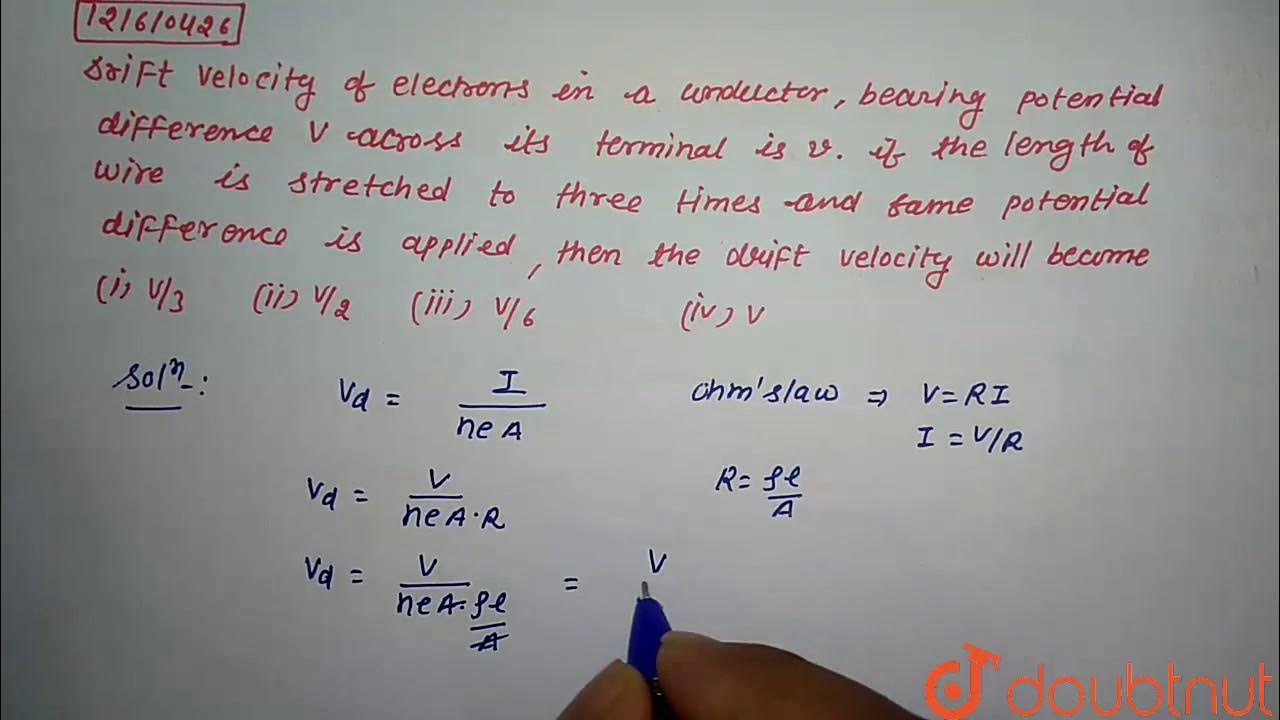 12/6/0426
Drift velocity of electrons in a conductor, bearing potential
difference V across its terminal is v. if the length of
wire is stretched to three times and same potential
difference is applied, then the drift velocity will become
(i) V/3 (ii) V/2 (iii) V/6 (iv) V
Solⁿ-: Vd = I / neA Ohm's law ⇒ V = RI
I = V/R
Vd = V / neA·R R = ρl / A
Vd = V / neA·ρl/A = V
doubtnut